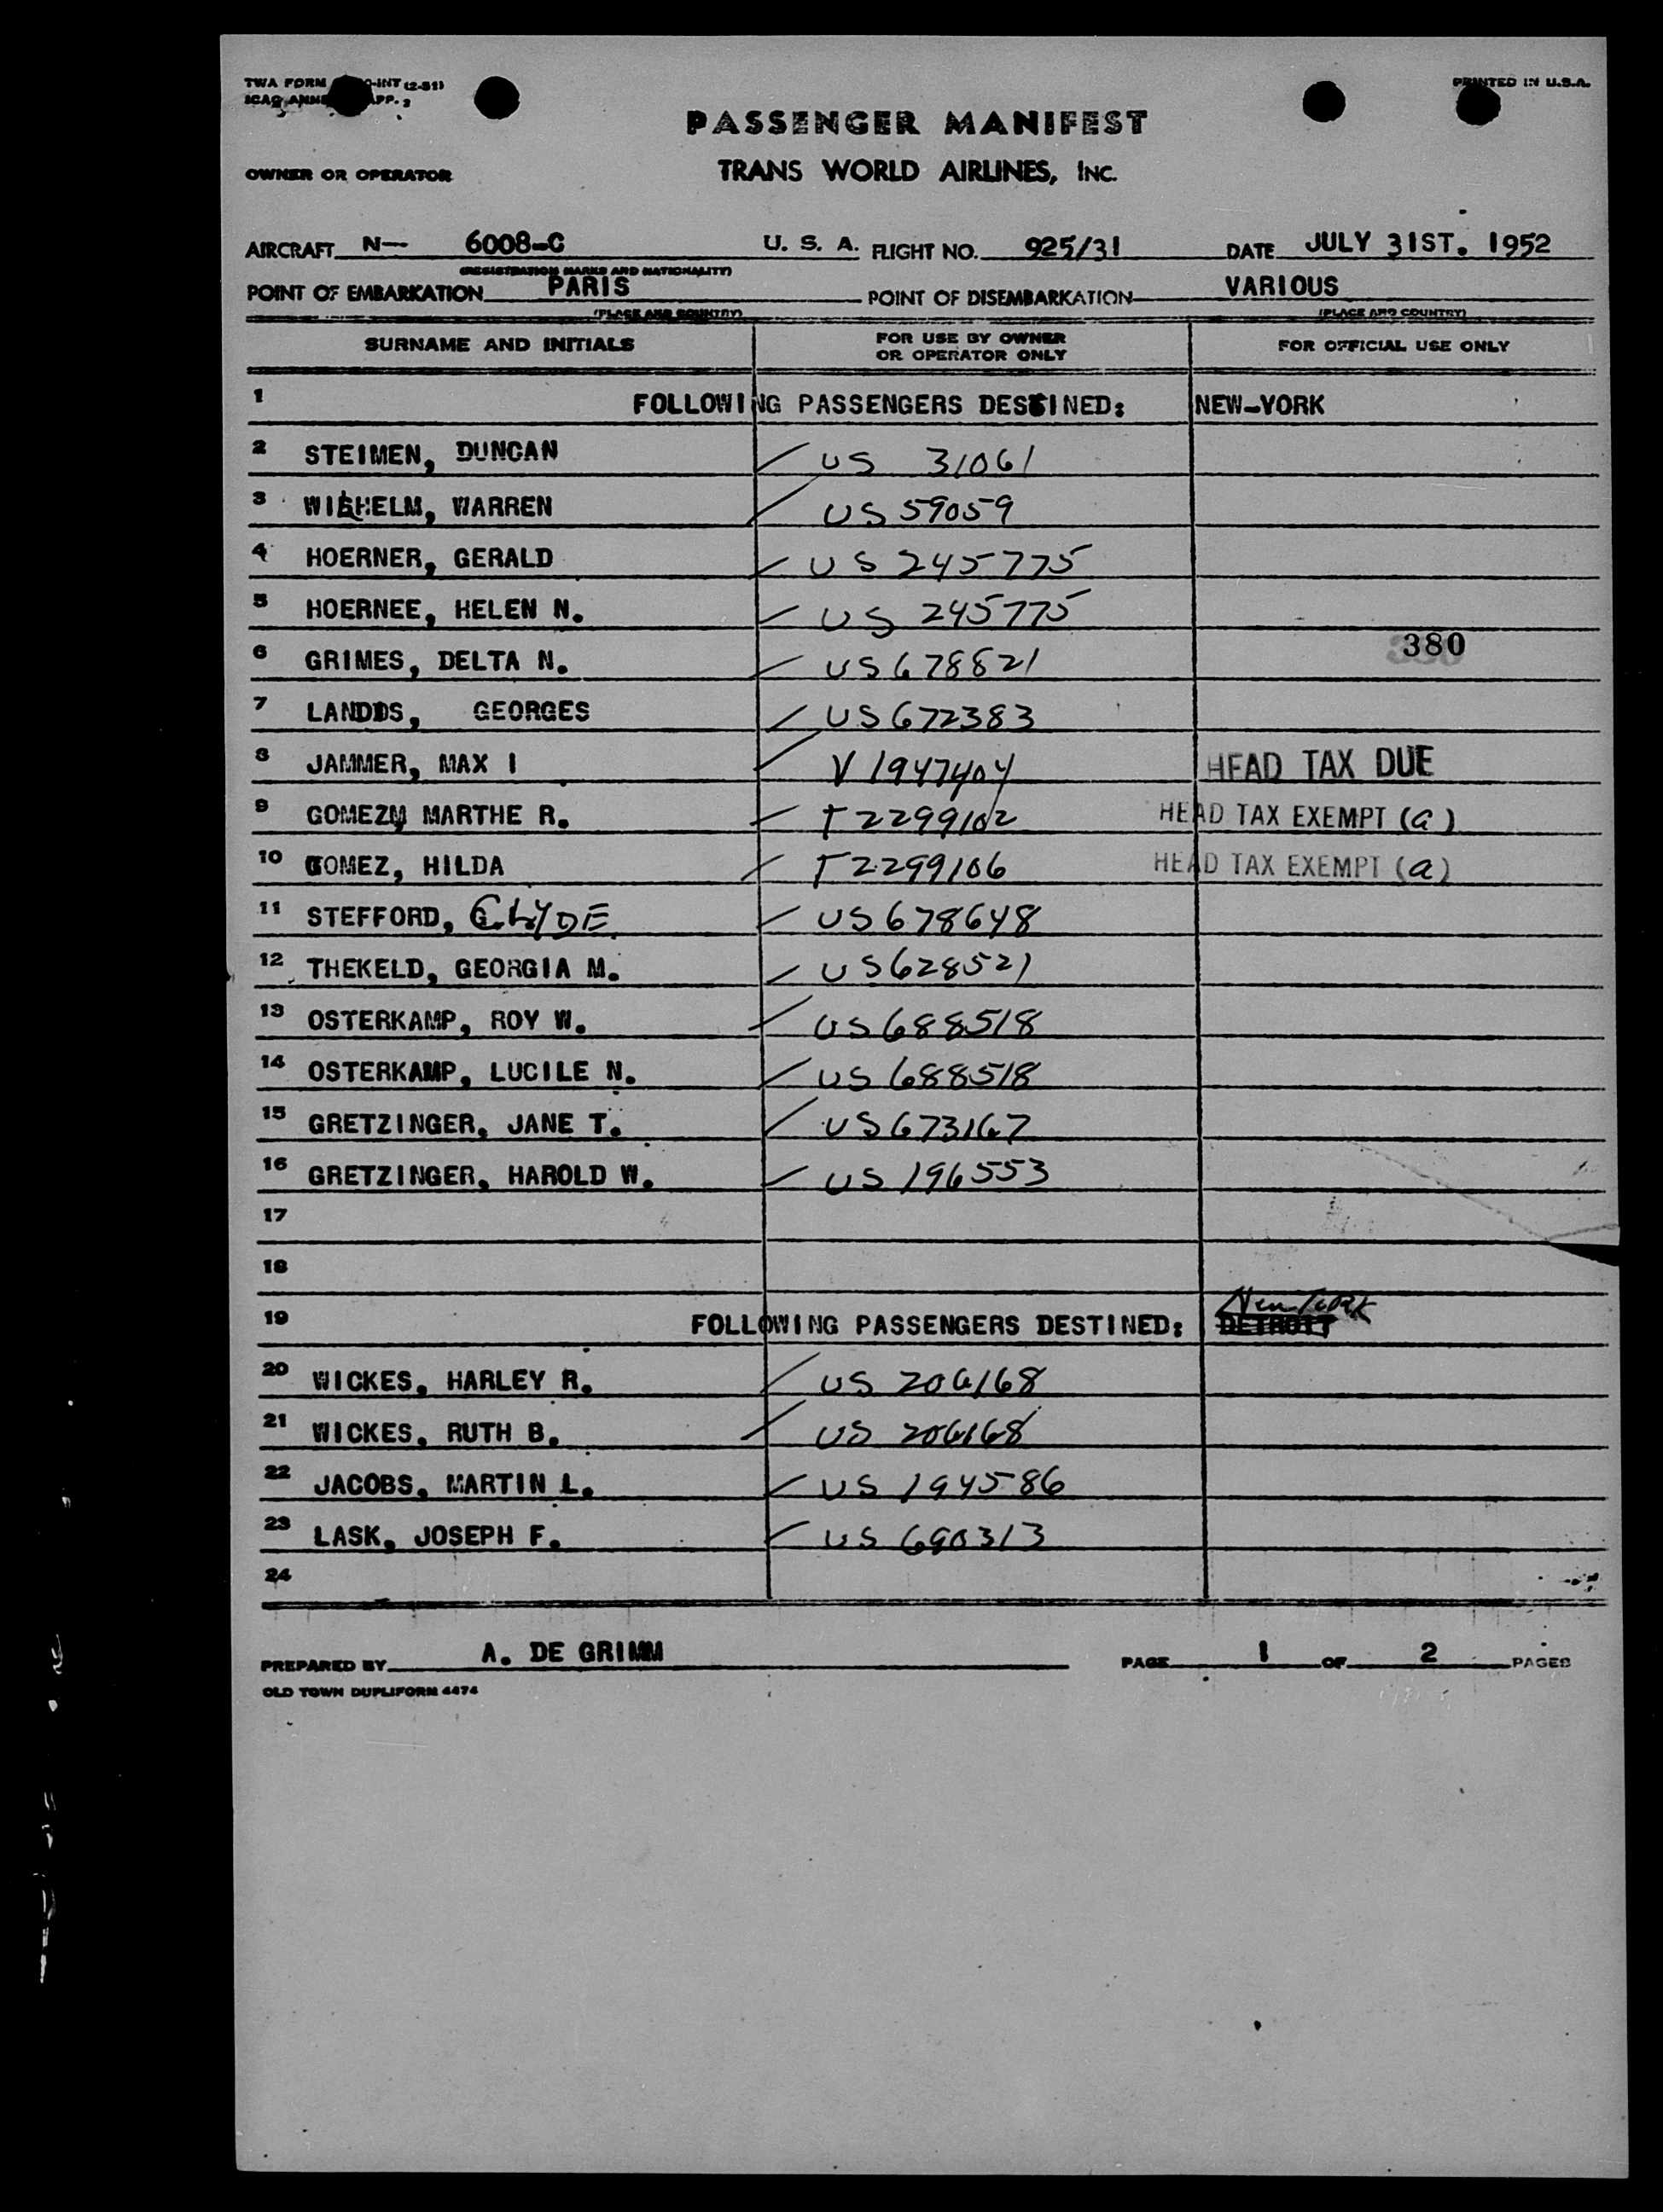 TWA FORM -INT (2-51)
ICAO ANNE APP. 2
PRINTED IN U.S.A.
PASSENGER MANIFEST
OWNER OR OPERATOR TRANS WORLD AIRLINES, INC.
AIRCRAFT N— 6008-C U. S. A. FLIGHT NO. 925/31 DATE JULY 31ST. 1952
(REGISTRATION MARKS AND NATIONALITY)
POINT OF EMBARKATION PARIS POINT OF DISEMBARKATION VARIOUS
(PLACE AND COUNTRY) (PLACE AND COUNTRY)
SURNAME AND INITIALS FOR USE BY OWNER OR OPERATOR ONLY FOR OFFICIAL USE ONLY
1 FOLLOWING PASSENGERS DESTINED: NEW-YORK
2 STEIMEN, DUNCAN US 31061
3 WILHELM, WARREN US 59059
4 HOERNER, GERALD US 245775
5 HOERNEE, HELEN N. US 245775
380
6 GRIMES, DELTA N. US 678821
7 LANDDS, GEORGES US 672383
8 JAMMER, MAX I V 1947404 HEAD TAX DUE
9 GOMEZM MARTHE R. T 2299102 HEAD TAX EXEMPT (a)
10 GOMEZ, HILDA T 2299106 HEAD TAX EXEMPT (a)
11 STEFFORD, CLYDE US 678648
12 THEKELD, GEORGIA M. US 628521
13 OSTERKAMP, ROY W. US 688518
14 OSTERKAMP, LUCILE N. US 688518
15 GRETZINGER, JANE T. US 673167
16 GRETZINGER, HAROLD W. US 196553
17
18
New York
19 FOLLOWING PASSENGERS DESTINED: DETROIT
20 WICKES, HARLEY R. US 206168
21 WICKES, RUTH B. US 206168
22 JACOBS, MARTIN L. US 194586
23 LASK, JOSEPH F. US 690313
24
PREPARED BY A. DE GRIMM PAGE 1 OF 2 PAGES
OLD TOWN DUPLIFORM 4474